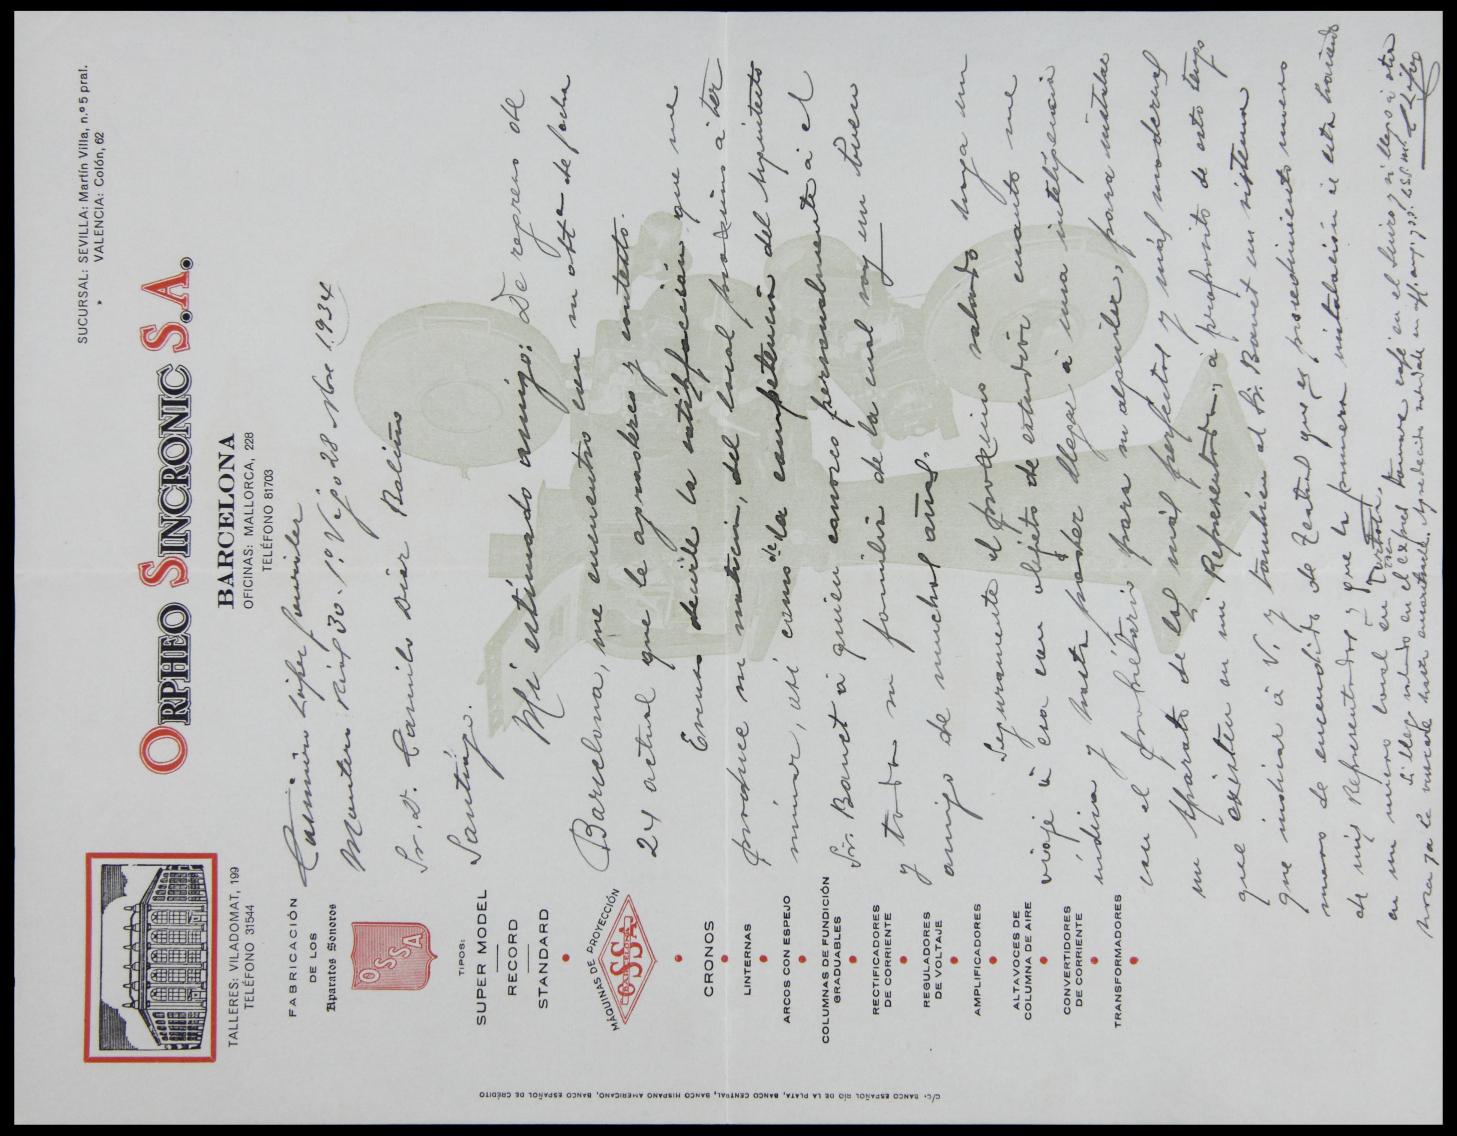 SUCURSAL: SEVILLA: Martín Villa, n.º 5 pral.
VALENCIA: Colón, 62
ORPHEO SINCRONIC S.A.
BARCELONA
OFICINAS: MALLORCA, 228
TELÉFONO 81703
TALLERES: VILADOMAT, 199
TELÉFONO 31544
FABRICACIÓN
DE LOS
Aparatos Sonoros
OSSA
TIPOS:
SUPER MODEL
RECORD
STANDARD
MÁQUINAS DE PROYECCIÓN
OSSA
CRONOS
LINTERNAS
ARCOS CON ESPEJO
COLUMNAS DE FUNDICIÓN
GRADUABLES
RECTIFICADORES
DE CORRIENTE
REGULADORES
DE VOLTAJE
AMPLIFICADORES
ALTAVOCES DE
COLUMNA DE AIRE
CONVERTIDORES
DE CORRIENTE
TRANSFORMADORES
C/C. BANCO ESPAÑOL RÍO DE LA PLATA, BANCO CENTRAL, BANCO HISPANO AMERICANO, BANCO ESPAÑOL DE CRÉDITO
Casimiro López
Montero Ríos 30-1º Vigo 28 Nbre 1.934
Sr. D. Camilo Díaz Baliño
Santiago.
Mi estimado amigo: De regreso de
Barcelona, me encuentro con su atta de fecha
24 actual que le agradezco y contesto.
decirle la satisfacción que me
produce su noticia, del local próximo à
así como de la competencia del Arquitecto
Sr. Banet à quien conozco personalmente à el
y toda su familia de la cual soy un buen
amigo de muchos años.
Seguramente el próximo sábado haga un
viaje à esa con objeto de extendir cuanto me
indica y hasta poder llegar à una inteligencia
con el propietario para su alquiler, para instalar
un Aparato de los más perfectos y más modernos
que existen en mi Representada, à propósito de esto tengo
que indicar à V. y también al Sr. Banet un sistema
de encendido de que es procedimiento nuevo
de mis Representados y que la primera instalación se está haciendo
en un nuevo local en Tortosa.